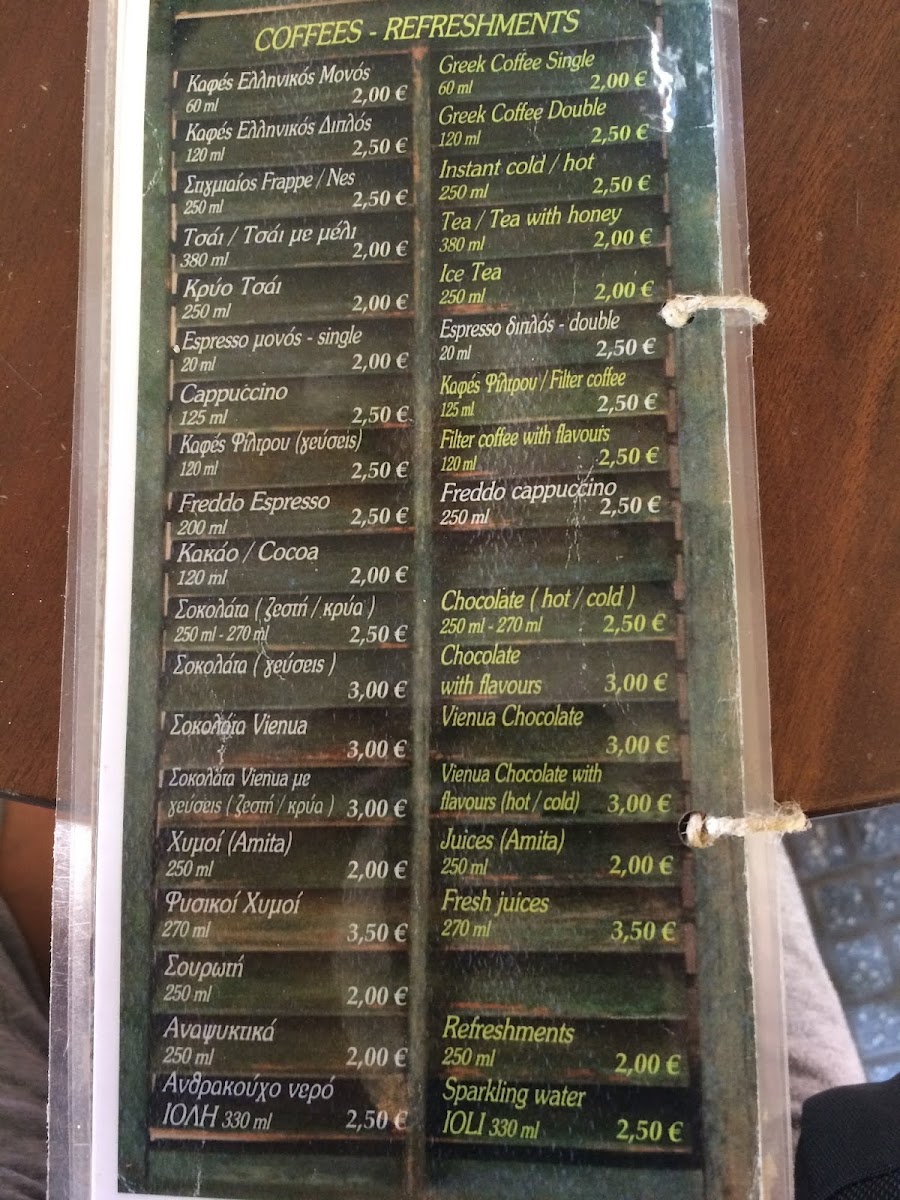 COFFEES - REFRESHMENTS
Καφές Ελληνικός Μονός
60 ml 2,00 €
Καφές Ελληνικός Διπλός
120 ml 2,50 €
Στιγμιαίος Frappe / Nes
250 ml 2,50 €
Τσάι / Τσάι με μέλι
380 ml 2,00 €
Κρύο Τσάι
250 ml 2,00 €
Espresso μονός - single
20 ml 2,00 €
Cappuccino
125 ml 2,50 €
Καφές Φίλτρου (γεύσεις)
120 ml 2,50 €
Freddo Espresso
200 ml 2,50 €
Κακάο / Cocoa
120 ml 2,00 €
Σοκολάτα ( ζεστή / κρύα )
250 ml - 270 ml 2,50 €
Σοκολάτα ( γεύσεις )
3,00 €
Σοκολάτα Vienua
3,00 €
Σοκολάτα Vienua με
γεύσεις ( ζεστή / κρύα ) 3,00 €
Χυμοί (Amita)
250 ml 2,00 €
Φυσικοί Χυμοί
270 ml 3,50 €
Σουρωτή
250 ml 2,00 €
Αναψυκτικά
250 ml 2,00 €
Ανθρακούχο νερό
ΙΟΛΗ 330 ml 2,50 €
Greek Coffee Single
60 ml 2,00 €
Greek Coffee Double
120 ml 2,50 €
Instant cold / hot
250 ml 2,50 €
Tea / Tea with honey
380 ml 2,00 €
Ice Tea
250 ml 2,00 €
Espresso διπλός - double
20 ml 2,50 €
Καφές Φίλτρου / Filter coffee
125 ml 2,50 €
Filter coffee with flavours
120 ml 2,50 €
Freddo cappuccino
250 ml 2,50 €
Chocolate ( hot / cold )
250 ml - 270 ml 2,50 €
Chocolate
with flavours 3,00 €
Vienua Chocolate
3,00 €
Vienua Chocolate with
flavours (hot / cold) 3,00 €
Juices (Amita)
250 ml 2,00 €
Fresh juices
270 ml 3,50 €
Refreshments
250 ml 2,00 €
Sparkling water
IOLI 330 ml 2,50 €